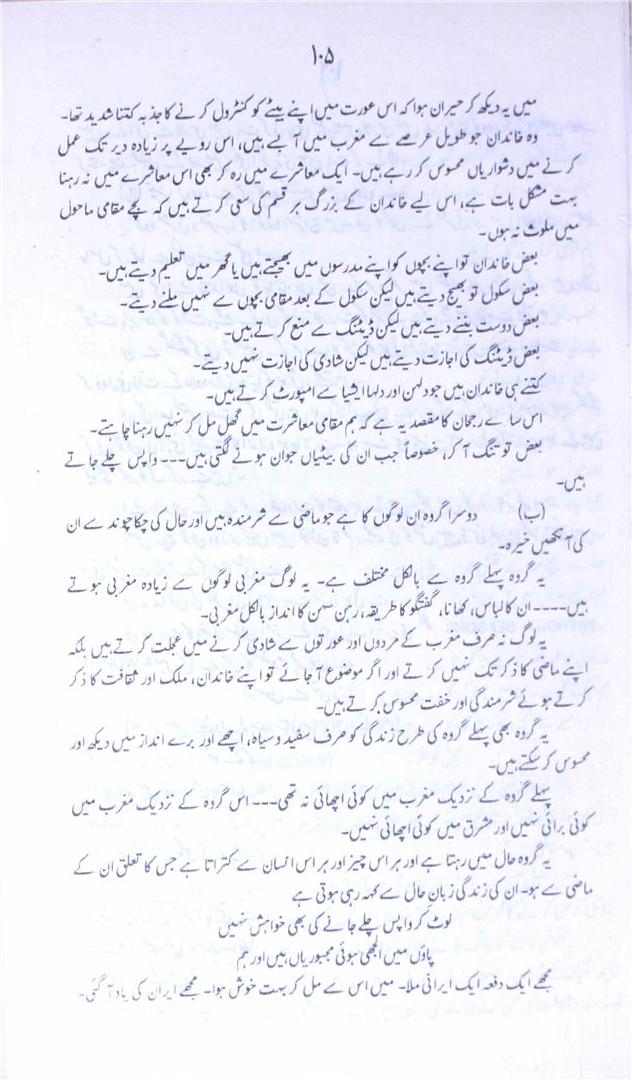 ۱۰۵
میں یہ دیکھ کر حیران ہوا کہ اس عورت میں اپنے بیٹے کو کنٹرول کرنے کا جذبہ کتنا شدید تھا۔
وہ خاندان جو طویل عرصے سے مغرب میں آ بسے ہیں، اس رویے پر زیادہ دیر تک عمل
کرنے میں دشواریاں محسوس کر رہے ہیں۔ ایک معاشرے میں رہ کر بھی اس معاشرے میں نہ رہنا
بہت مشکل بات ہے، اس لیے خاندان کے بزرگ ہر قسم کی سعی کرتے ہیں کہ بچے مقامی ماحول
میں ملوث نہ ہوں۔
بعض خاندان تو اپنے بچوں کو اپنے مدرسوں میں بھیجتے ہیں یا گھر میں تعلیم دیتے ہیں۔
بعض سکول تو بھیج دیتے ہیں لیکن سکول کے بعد مقامی بچوں سے نہیں ملنے دیتے۔
بعض دوست بننے دیتے ہیں لیکن ڈیٹنگ سے منع کرتے ہیں۔
بعض ڈیٹنگ کی اجازت دیتے ہیں لیکن شادی کی اجازت نہیں دیتے۔
کتنے ہی خاندان ہیں جو دلہن اور دلہا ایشیا سے امپورٹ کرتے ہیں۔
اس سارے رجحان کا مقصد یہ ہے کہ ہم مقامی معاشرت میں گھل مل کر نہیں رہنا چاہتے۔
بعض تو تنگ آ کر، خصوصاً جب ان کی بیٹیاں جوان ہونے لگتی ہیں۔۔۔ واپس چلے جاتے
ہیں۔
(ب) دوسرا گروہ ان لوگوں کا ہے جو ماضی سے شرمندہ ہیں اور حال کی چکاچوند سے ان
کی آنکھیں خیرہ۔
یہ گروہ پہلے گروہ سے بالکل مختلف ہے۔ یہ لوگ مغربی لوگوں سے زیادہ مغربی ہوتے
ہیں۔۔۔۔ ان کا لباس، کھانا، گفتگو کا طریقہ، رہن سہن کا انداز بالکل مغربی۔
یہ لوگ نہ صرف مغرب کے مردوں اور عورتوں سے شادی کرنے میں عجلت کرتے ہیں بلکہ
اپنے ماضی کا ذکر تک نہیں کرتے اور اگر موضوع آ جائے تو اپنے خاندان، ملک اور ثقافت کا ذکر
کرتے ہوئے شرمندگی اور خفت محسوس کرتے ہیں۔
یہ گروہ بھی پہلے گروہ کی طرح زندگی کو صرف سفید و سیاہ، اچھے اور برے انداز میں دیکھ اور
محسوس کر سکتے ہیں۔
پہلے گروہ کے نزدیک مغرب میں کوئی اچھائی نہ تھی۔۔۔ اس گروہ کے نزدیک مغرب میں
کوئی برائی نہیں اور مشرق میں کوئی اچھائی نہیں۔
یہ گروہ حال میں رہتا ہے اور ہر اس چیز اور ہر اس انسان سے کتراتا ہے جس کا تعلق ان کے
ماضی سے ہو۔ ان کی زندگی زبان حال سے کہہ رہی ہوتی ہے
لوٹ کر واپس چلے جانے کی بھی خواہش نہیں
پاؤں میں الجھی ہوئی مجبوریاں ہیں اور ہم
مجھے ایک دفعہ ایک ایرانی ملا۔ میں اس سے مل کر بہت خوش ہوا۔ مجھے ایران کی یاد آ گئی۔